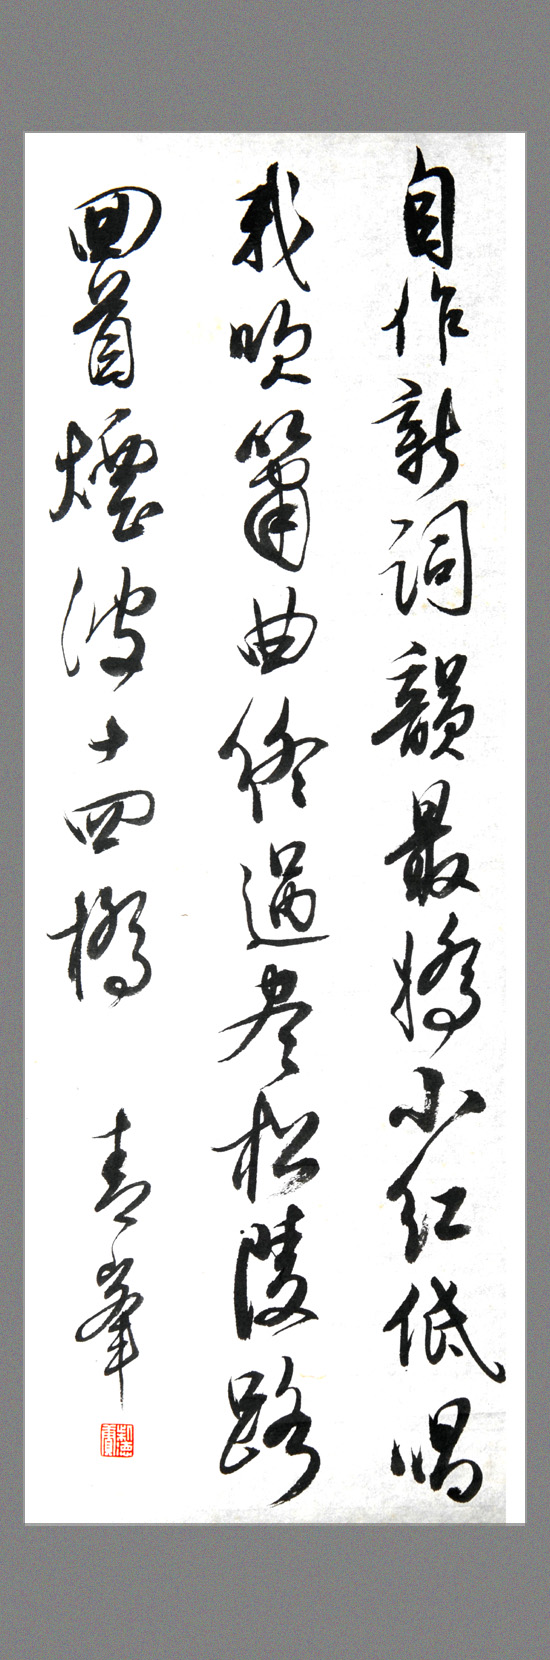 自作新词韻最嬌小红低唱
我吹簫曲終過尽松陵路
回首煙波十四橋
青峯